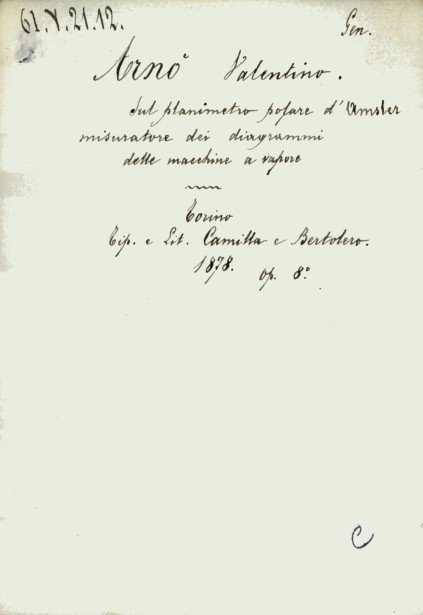 61.V.21.12.
Gen.
Arnò Valentino.
Sul planimetro polare d'Amsler
misuratore dei diagrammi
delle macchine a vapore
Torino
Tip. e Lit. Camilla e Bertolero.
1878. op. 8º
C